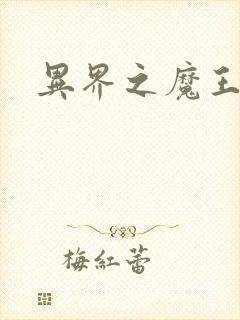 異界之魔王
梅紅蕾